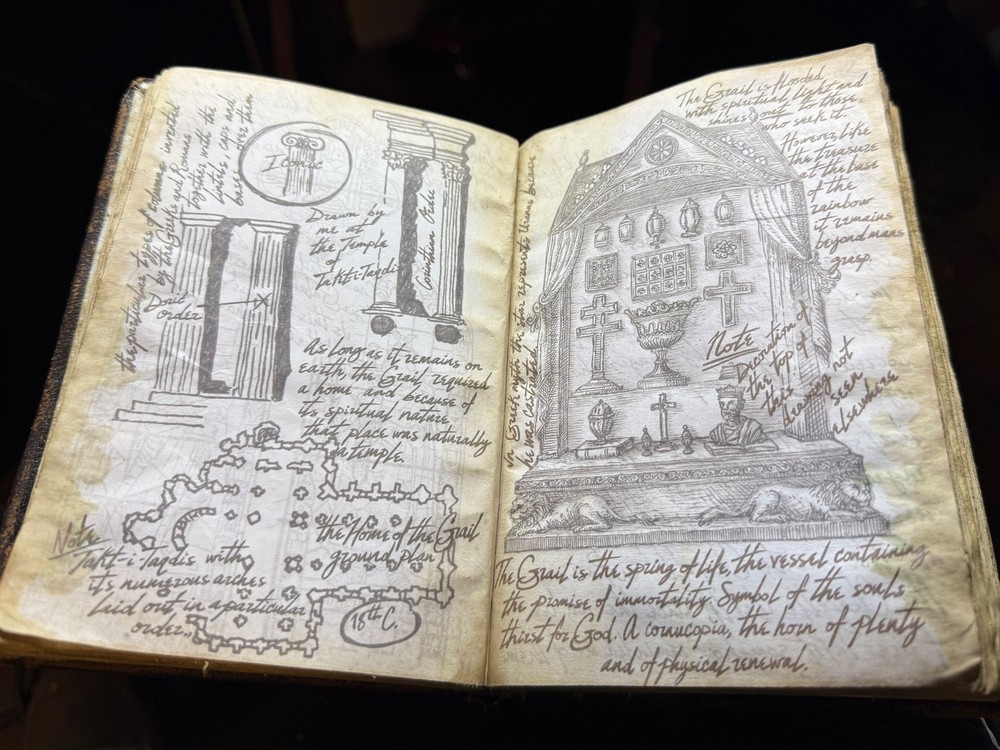 the particular types of columns invented
by the Greeks and Romans
together with the
capitals, caps and
bases over them
Ionic
Drawn by
me at
the Temple
of
Takt-i-Taqdis
Corinthian Order
Doric
order
X
As long as it remains on
earth, the Grail required
a home and because of
its spiritual nature
that place was naturally
a temple.
the Home of the Grail
ground plan
Note
Takt-i Taqdis with
it's numerous arches
laid out in a particular
order..
18th C.
The Grail is flooded
with spiritual light and
shines out to those
who seek it.
However, like
the treasure
at the base
of the
rainbow
it remains
beyond mans
grasp.
in Greek myth this star represents Uranus because
he was castrated
Note
Decoration of
the top of
this
drawing not
seen
elsewhere
The Grail is the spring of life, the vessel containing
the promise of immortality. Symbol of the souls
thirst for God. A cornucopia, the horn of plenty
and of physical renewal.